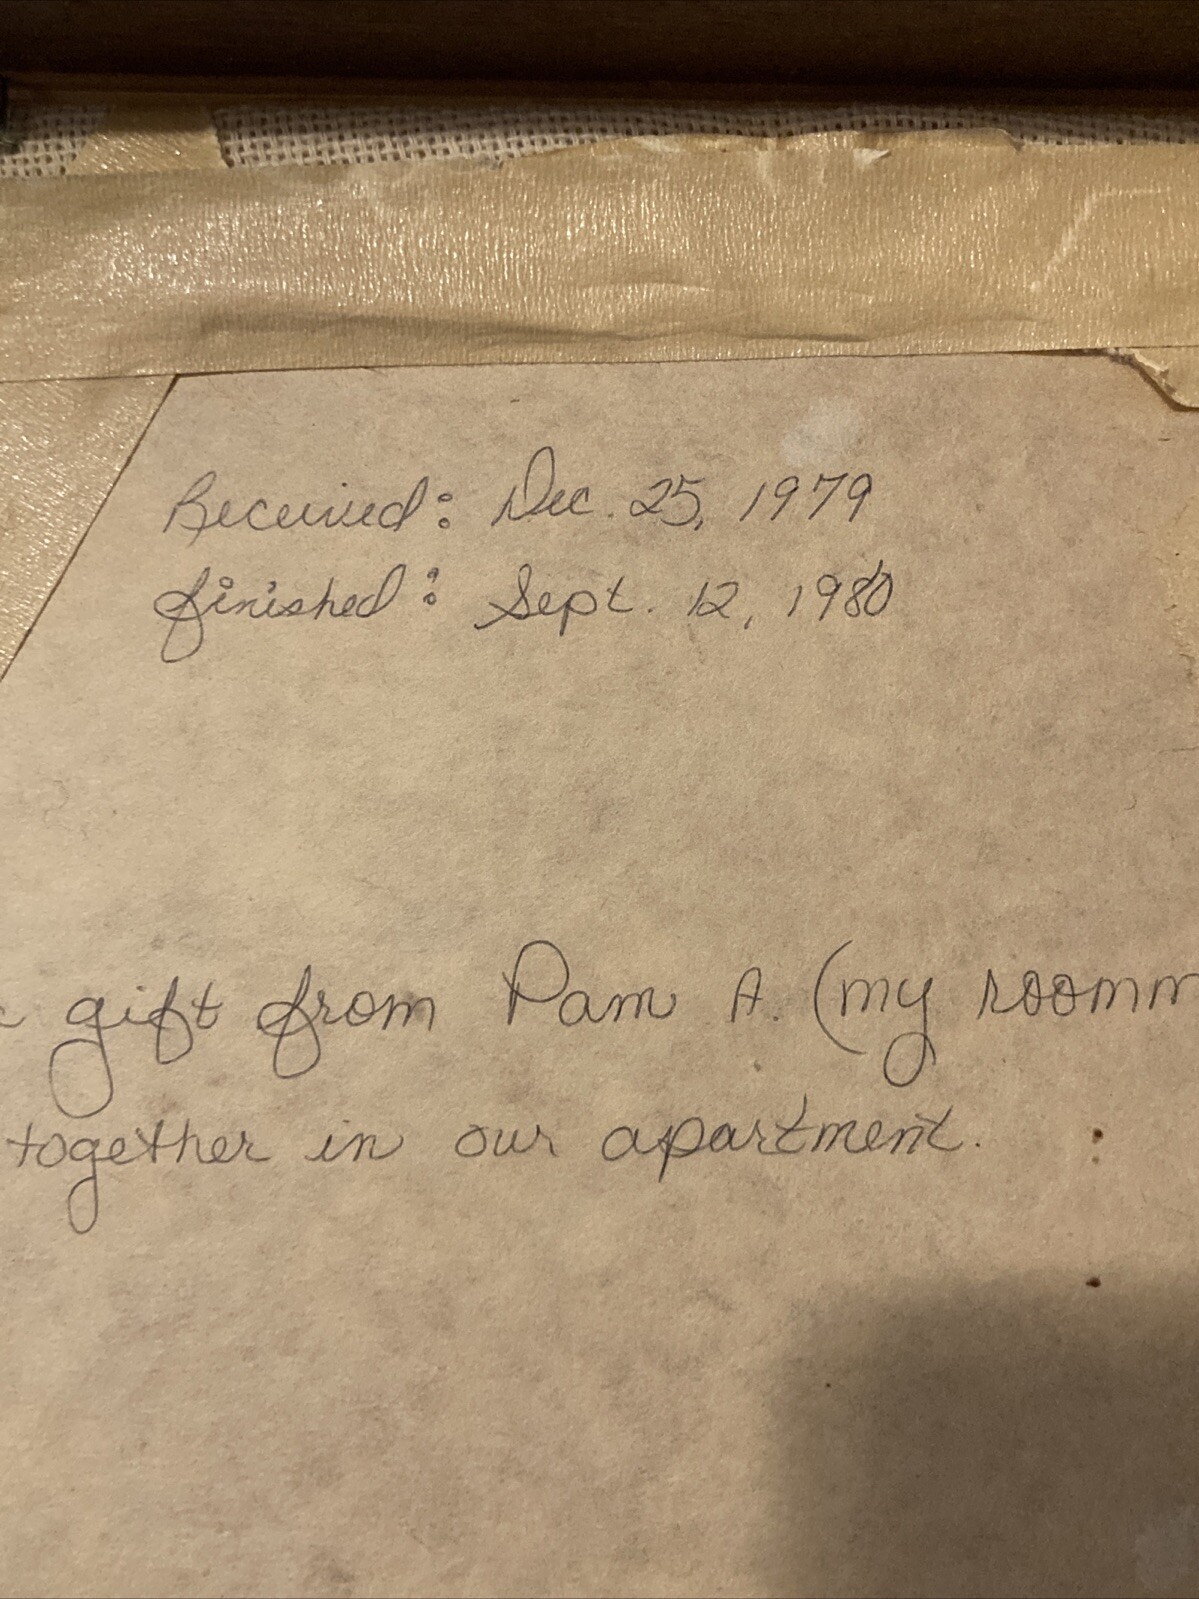 Received: Dec. 25, 1979
finished: Sept. 12, 1980
gift from Pam A. (my roomm
together in our apartment.